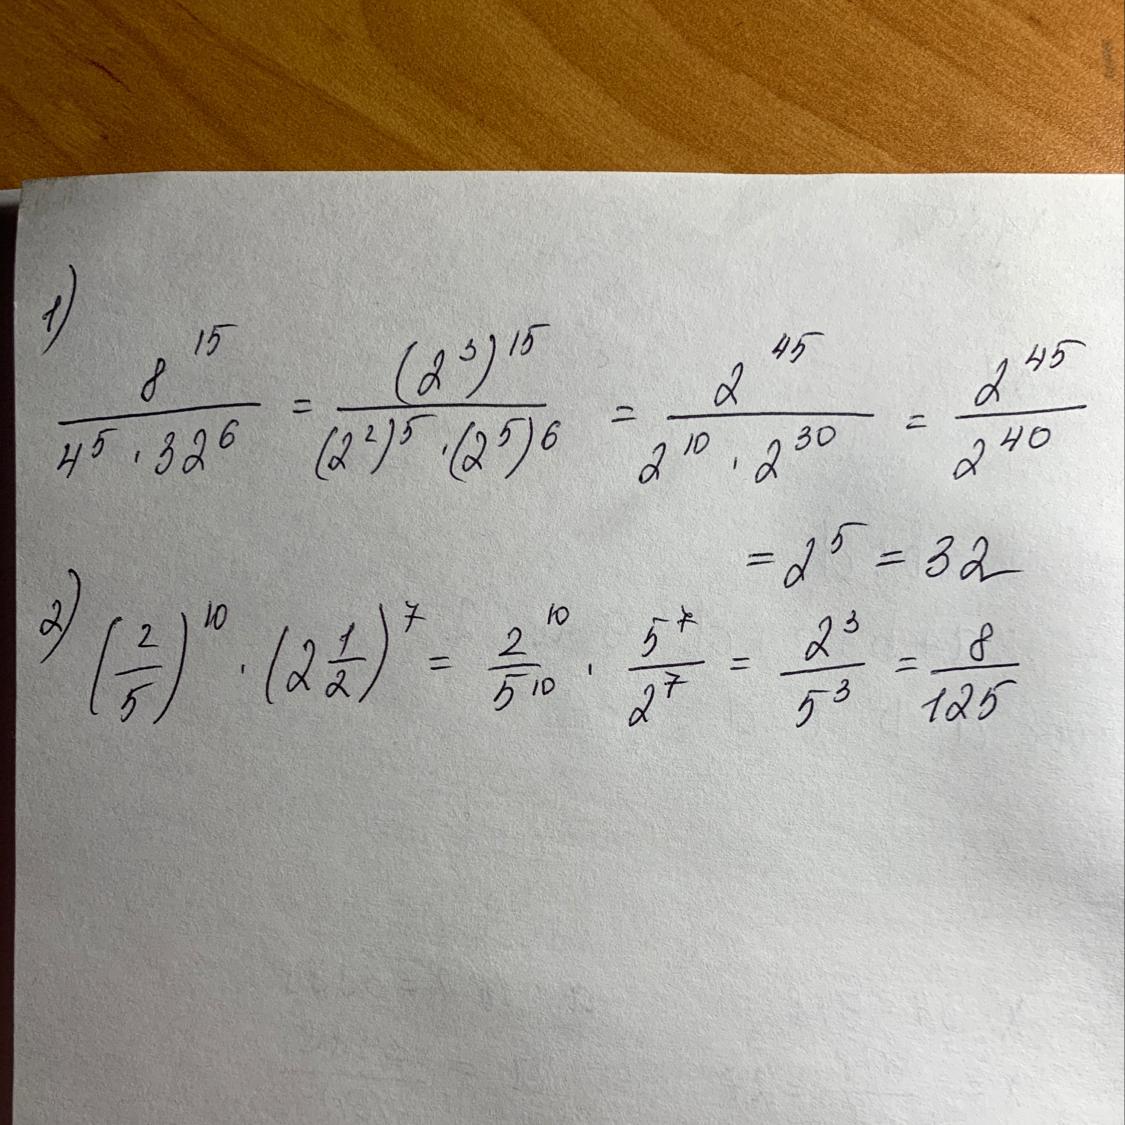 1)
8^15 / (4^5 · 32^6) = (2^3)^15 / ((2^2)^5 · (2^5)^6) = 2^45 / (2^10 · 2^30) = 2^45 / 2^40
= 2^5 = 32
2) (2/5)^10 · (2 1/2)^7 = 2^10 / 5^10 · 5^7 / 2^7 = 2^3 / 5^3 = 8/125